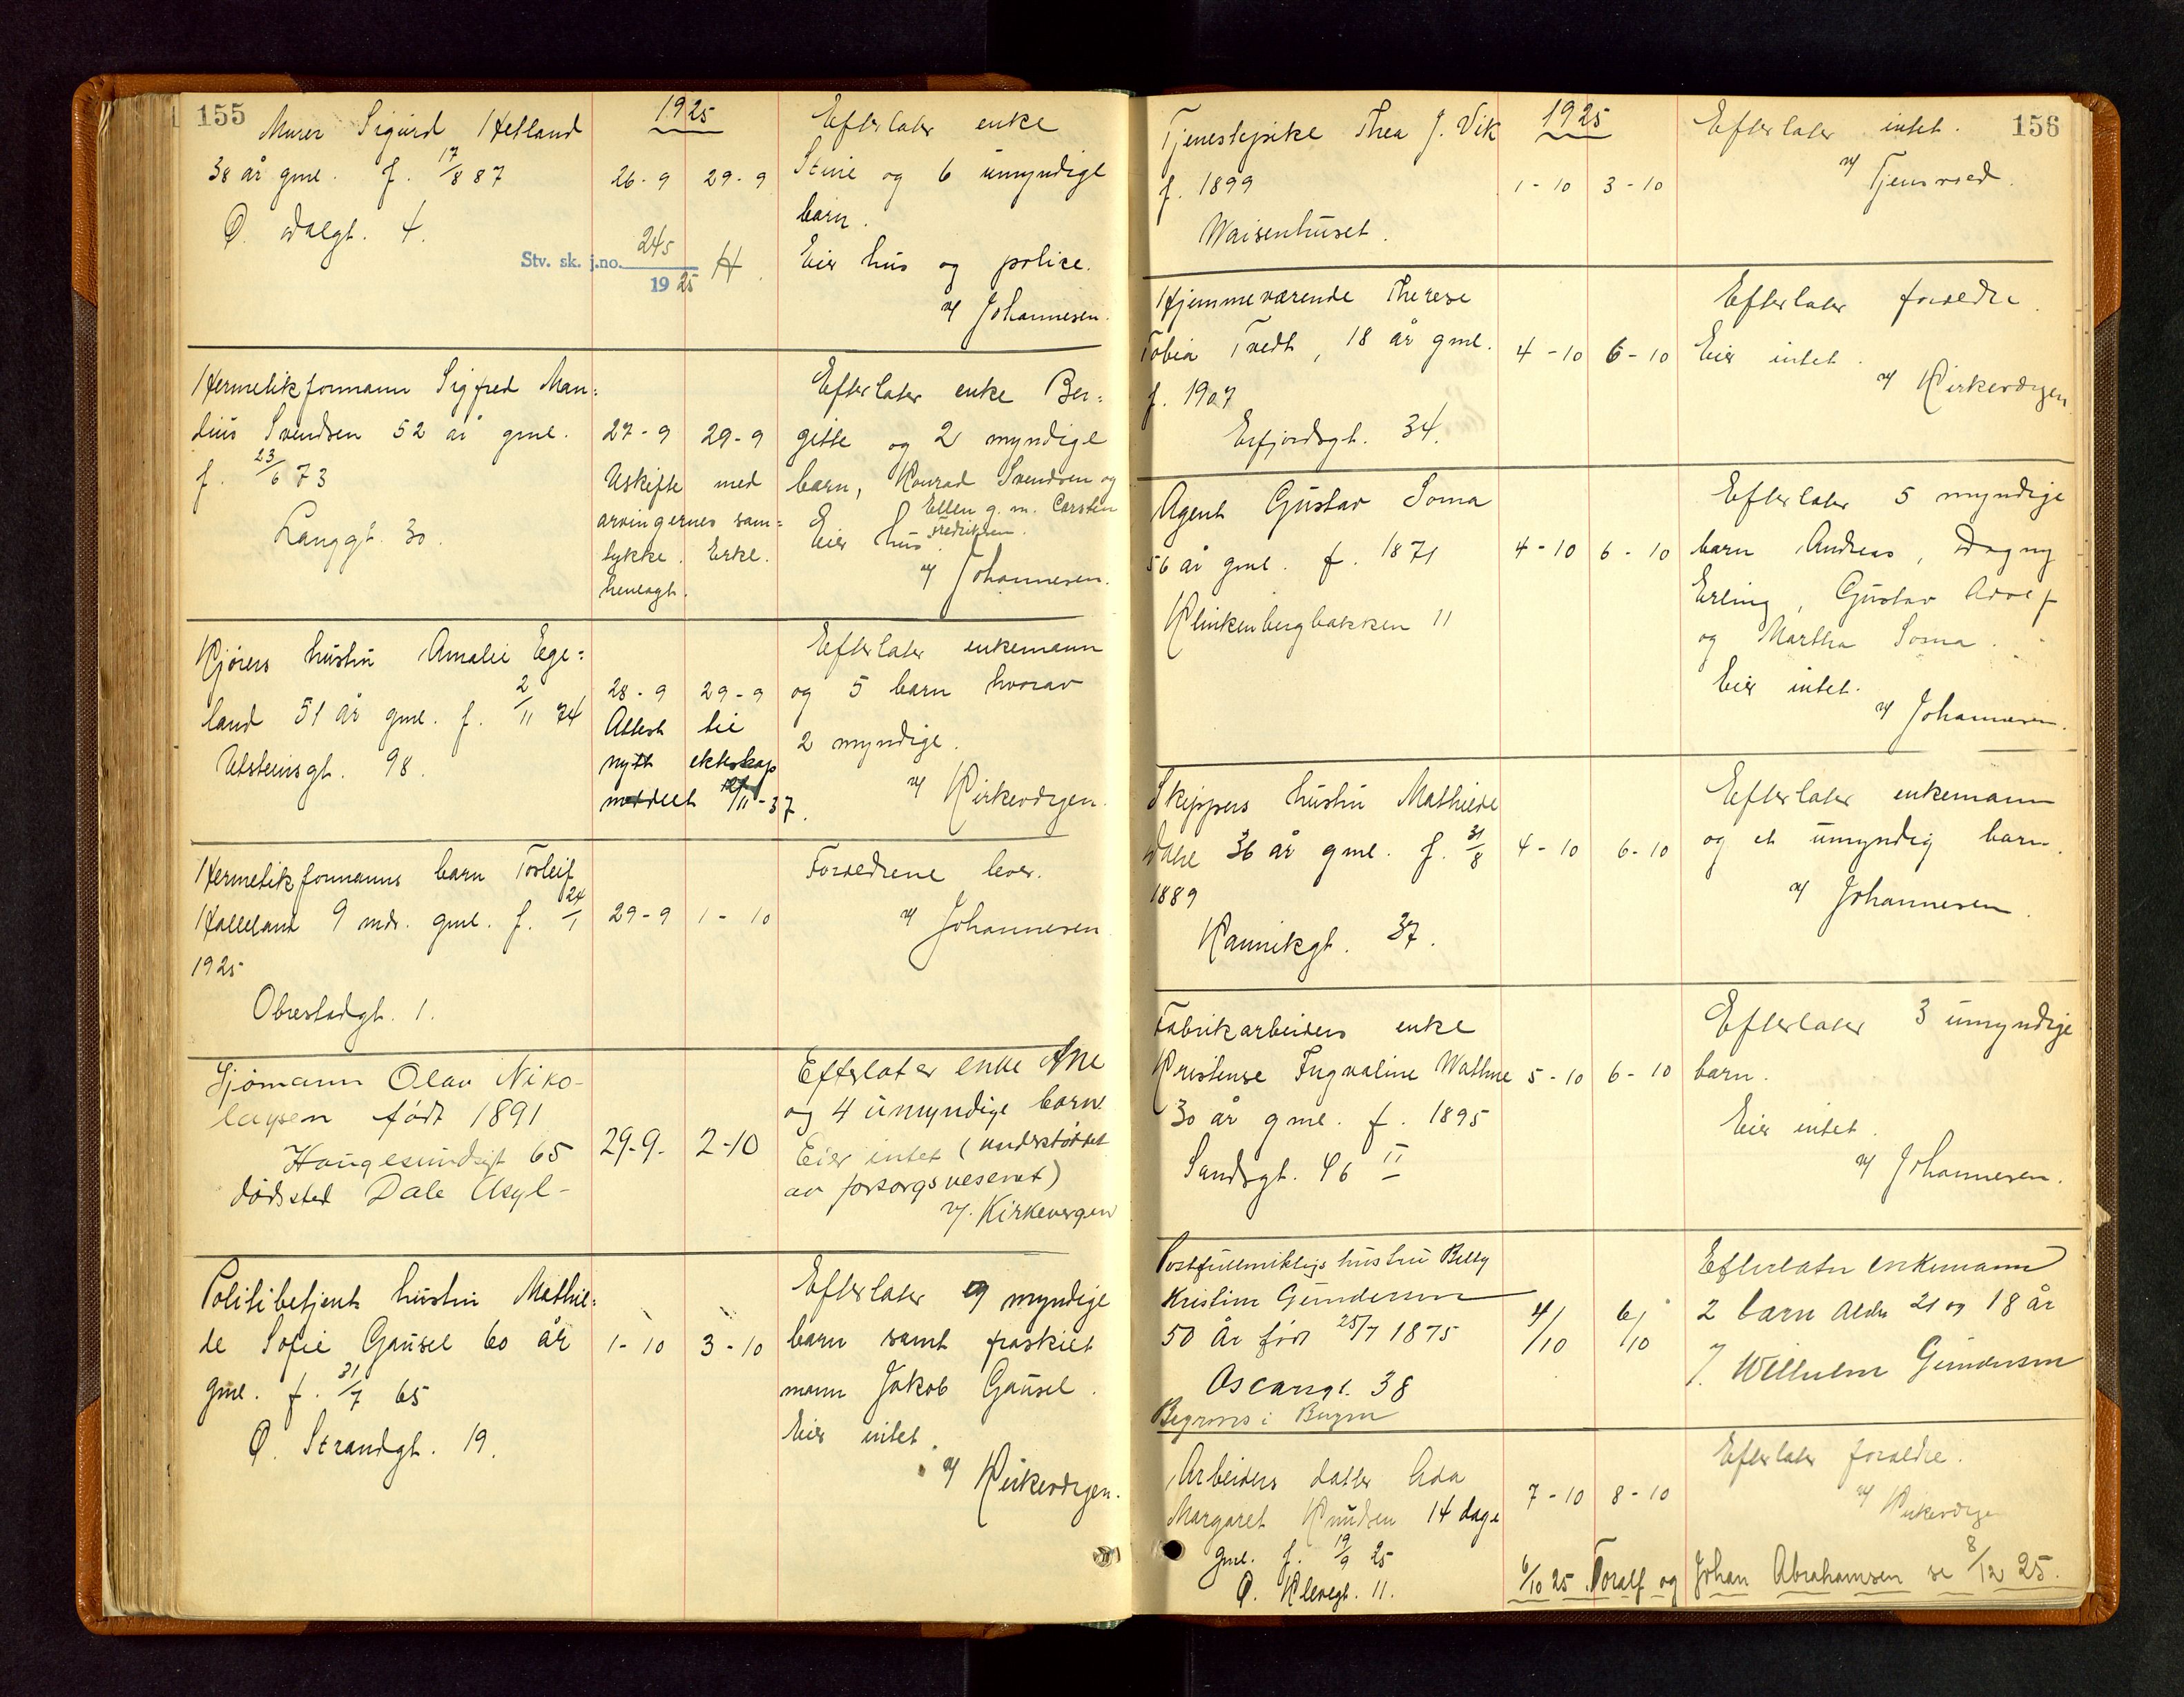 155
1925
Murer Sigurd Hetland
38 år gml. f. 17/8 87
Ø. Dalgt. 4.
26-9 29-9
Stv. sk. j.no. 245 H.
1925
Efterlater enke
Stine og 6 umyndige
barn.
Eier hus og police.
v/ Johannesen.
Hermetikformann Sigfred Man=
dius Svendsen 52 år gml.
f. 23/6 73
Langgt. 30.
27-9 29-9
Uskifte med
arvingernes sam=
tykke. Erkl.
henlagt.
Efterlater enke Ber=
gitte og 2 myndige
barn, Konrad Svendsen og
Ellen g. m. Carsten
Fredriksen.
Eier hus.
v/ Johannesen.
Kjørers hustru Amalie Ege=
land 51 år gml. f. 2/11 74
Utsteinsgt. 98.
28-9 29-9
Attest til
nytt ekteskap
meddelt 12/11-37.
Efterlater enkemann
og 5 barn hvorav
2 myndige.
v/ Kirkevergen.
Hermetikformanns barn Torleif
Halleland 9 mdr. gml. f. 24/1
1925
Obrestadgt. 1.
29-9 1-10
Forældrene lever.
v/ Johannesen
Sjømann Olav Niko-
laysen født 1891
Haugesundsgt 65
dødssted Dale Asyl-
29-9. 2-10
Efterlater enke Ane
og 4 umyndige barn
Eier intet (understøttet
av forsorgsvesenet)
v/. Kirkevergen
Politibetjents hustru Mathil=
de Sofie Gausel 60 år
gml. f. 31/7 65
Ø. Strandgt. 19.
1-10 3-10
Efterlater 9 myndige
barn samt fraskilt
mann Jakob Gausel.
Eier intet.
v/ Kirkevergen.
156
1925
Tjenestepike Thea J. Vik
f. 1899
Waisenhuset.
1-10 3-10
Efterlater intet.
v/ Tjensvold.
Hjemmeværende Therese
Tobia Tvedt, 18 år gml.
f. 1907
Erfjordsgt. 34.
4-10 6-10
Efterlater foreldre.
Eier intet.
v/ Kirkevergen
Agent Gustav Soma
56 år gml. f. 1871
Klinkenbergbakken 11
4-10 6-10
Efterlater 5 myndige
barn Andreas, Dagny
Erling, Gustav Adolf
og Martha Soma.
Eier intet.
v/ Johannesen.
Skippers hustru Mathilde
Dahl 36 år gml. f. 31/8
1889
Kannikgt. 37.
4-10 6-10
Efterlater enkemann
og et umyndig barn.
v/ Johannesen.
Fabrikarbeiders enke
Kristense Ingvaline Wathne
30 år gml. f. 1895
Sandsgt. 46 II
5-10 6-10
Efterlater 3 umyndige
barn.
Eier intet.
v/ Johannesen.
Postfullmektigs hustru Betty
Kristine Gundersen
50 år født 25/7 1875
Oscarsgt. 38
Begraves i Bergen
4/10 6/10
Efterlater enkemann
2 barn alder 21 og 18 år
Wilhelm Gundersen
Arbeiders datter Ada
Margaret Knudsen 14 dage
gml. f. 19/9 25
Ø. Klevegt. 11.
7-10 8-10
Efterlater foreldre.
v/ Kirkevergen
6/10 25 Toralf og Johan Abrahamsen se 8/12 25.